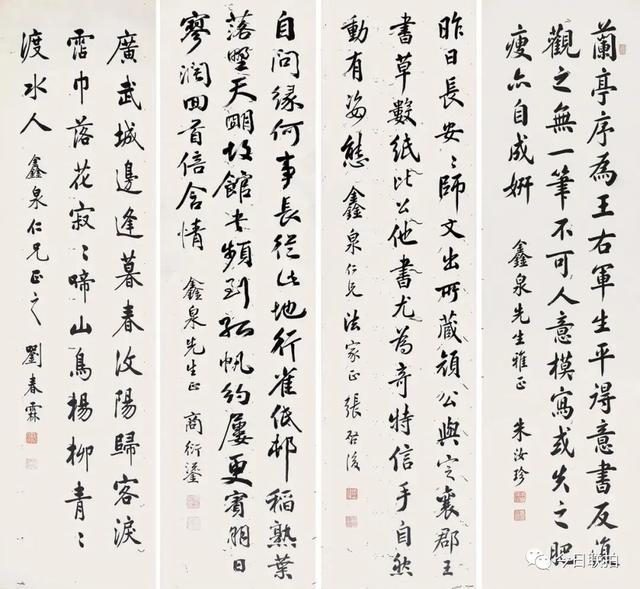 蘭亭序為王右軍生平得意書反復
觀之無一筆不可人意模寫或失之肥
瘦亦自成妍 鑫泉先生雅正 朱汝珍
昨日長安〻師文出所藏顏公與定襄郡王
書草數紙比公他書尤為奇特信手自然
動有姿態 鑫泉仁兄法家正 張啓後
自問緣何事長從此地行雀低邨稻熟葉
落天明故館頻到孤帆約屢更賓朋日
寥濶回首倍含情 鑫泉先生正 商衍鎏
廣武城邊逢暮春汶陽歸客淚
霑巾落花寂〻啼山鳥楊柳青〻
渡水人 鑫泉仁兄正之 劉春霖
今日联拍